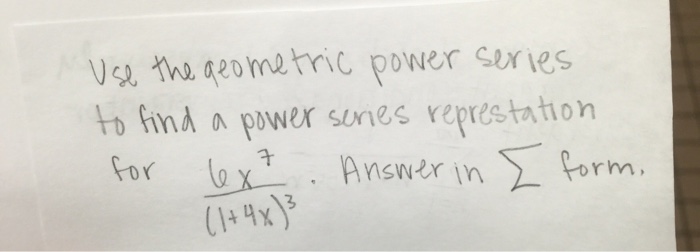 Use the geometric power series
to find a power series represtation
for 6x^7/(1+4x)^3. Answer in ∑ form.